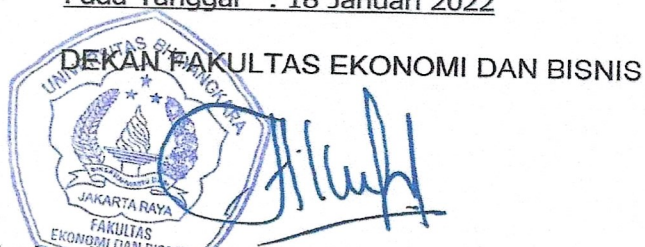 Pada Tanggal : 18 Januari 2022
DEKAN FAKULTAS EKONOMI DAN BISNIS
UNIVERSITAS BHAYANGKARA
JAKARTA RAYA
FAKULTAS
EKONOMI DAN BISNIS